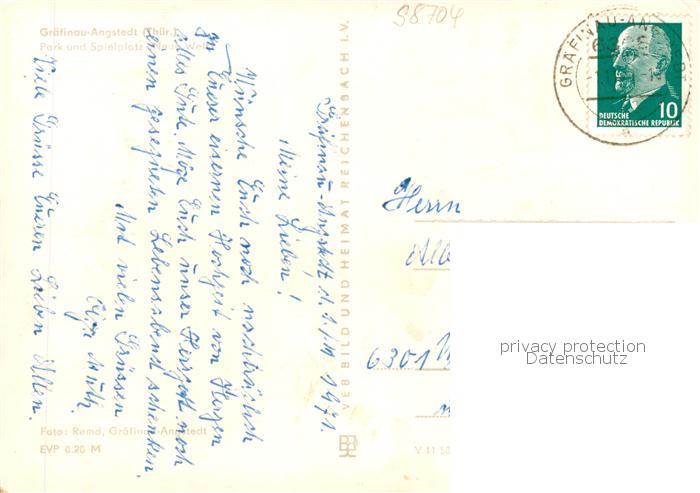 98704
Gräfinau-Angstedt (Thür.)
Park und Spielplatz "Neue Welt"
Gräfinau-Angstedt d. 2./11 1971.
Meine Lieben!
Wünsche Euch noch nachträglich
zu Eurer eisernen Hochzeit von Herzen
alles Gute. Möge Euch unser Herrgott noch
einen gesegneten Lebensabend schenken.
Mit vielen Grüssen
Viele Grüsse Eueren Lieben Allen.
Foto: Remd, Gräfinau-Angstedt
EVP 0.20 M
VEB BILD UND HEIMAT REICHENBACH i. V.
V 11 50
GRÄFINAU-ANGSTEDT
DEUTSCHE
DEMOKRATISCHE REPUBLIK
10
Herrn
6301
privacy protection
Datenschutz